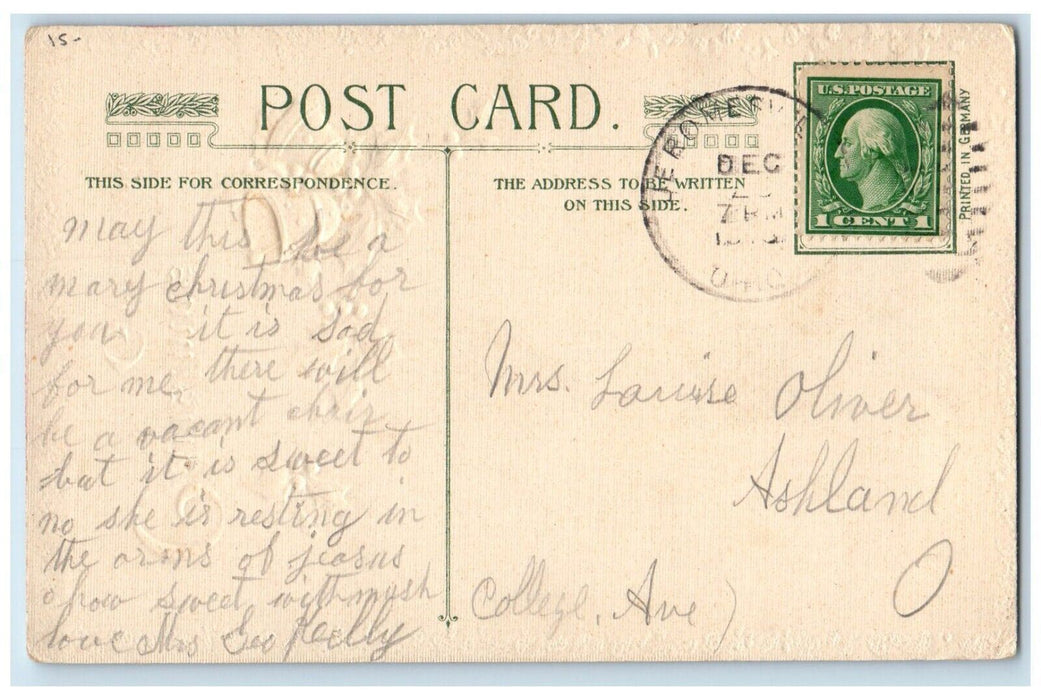 15-
POST CARD.
THIS SIDE FOR CORRESPONDENCE.
THE ADDRESS TO BE WRITTEN
ON THIS SIDE.
U.S. POSTAGE
1 CENT 1
PRINTED IN GERMANY
JEROMESV
DEC
may this be a
mary christmas for
you it is sad
for me, there will
be a vacant chair
but it is sweet to
no she is resting in
the arms of jeasus
o how sweet with mush
love Mrs Geo Kelly
Mrs. Louise Oliver
Ashland
O
College, Ave)